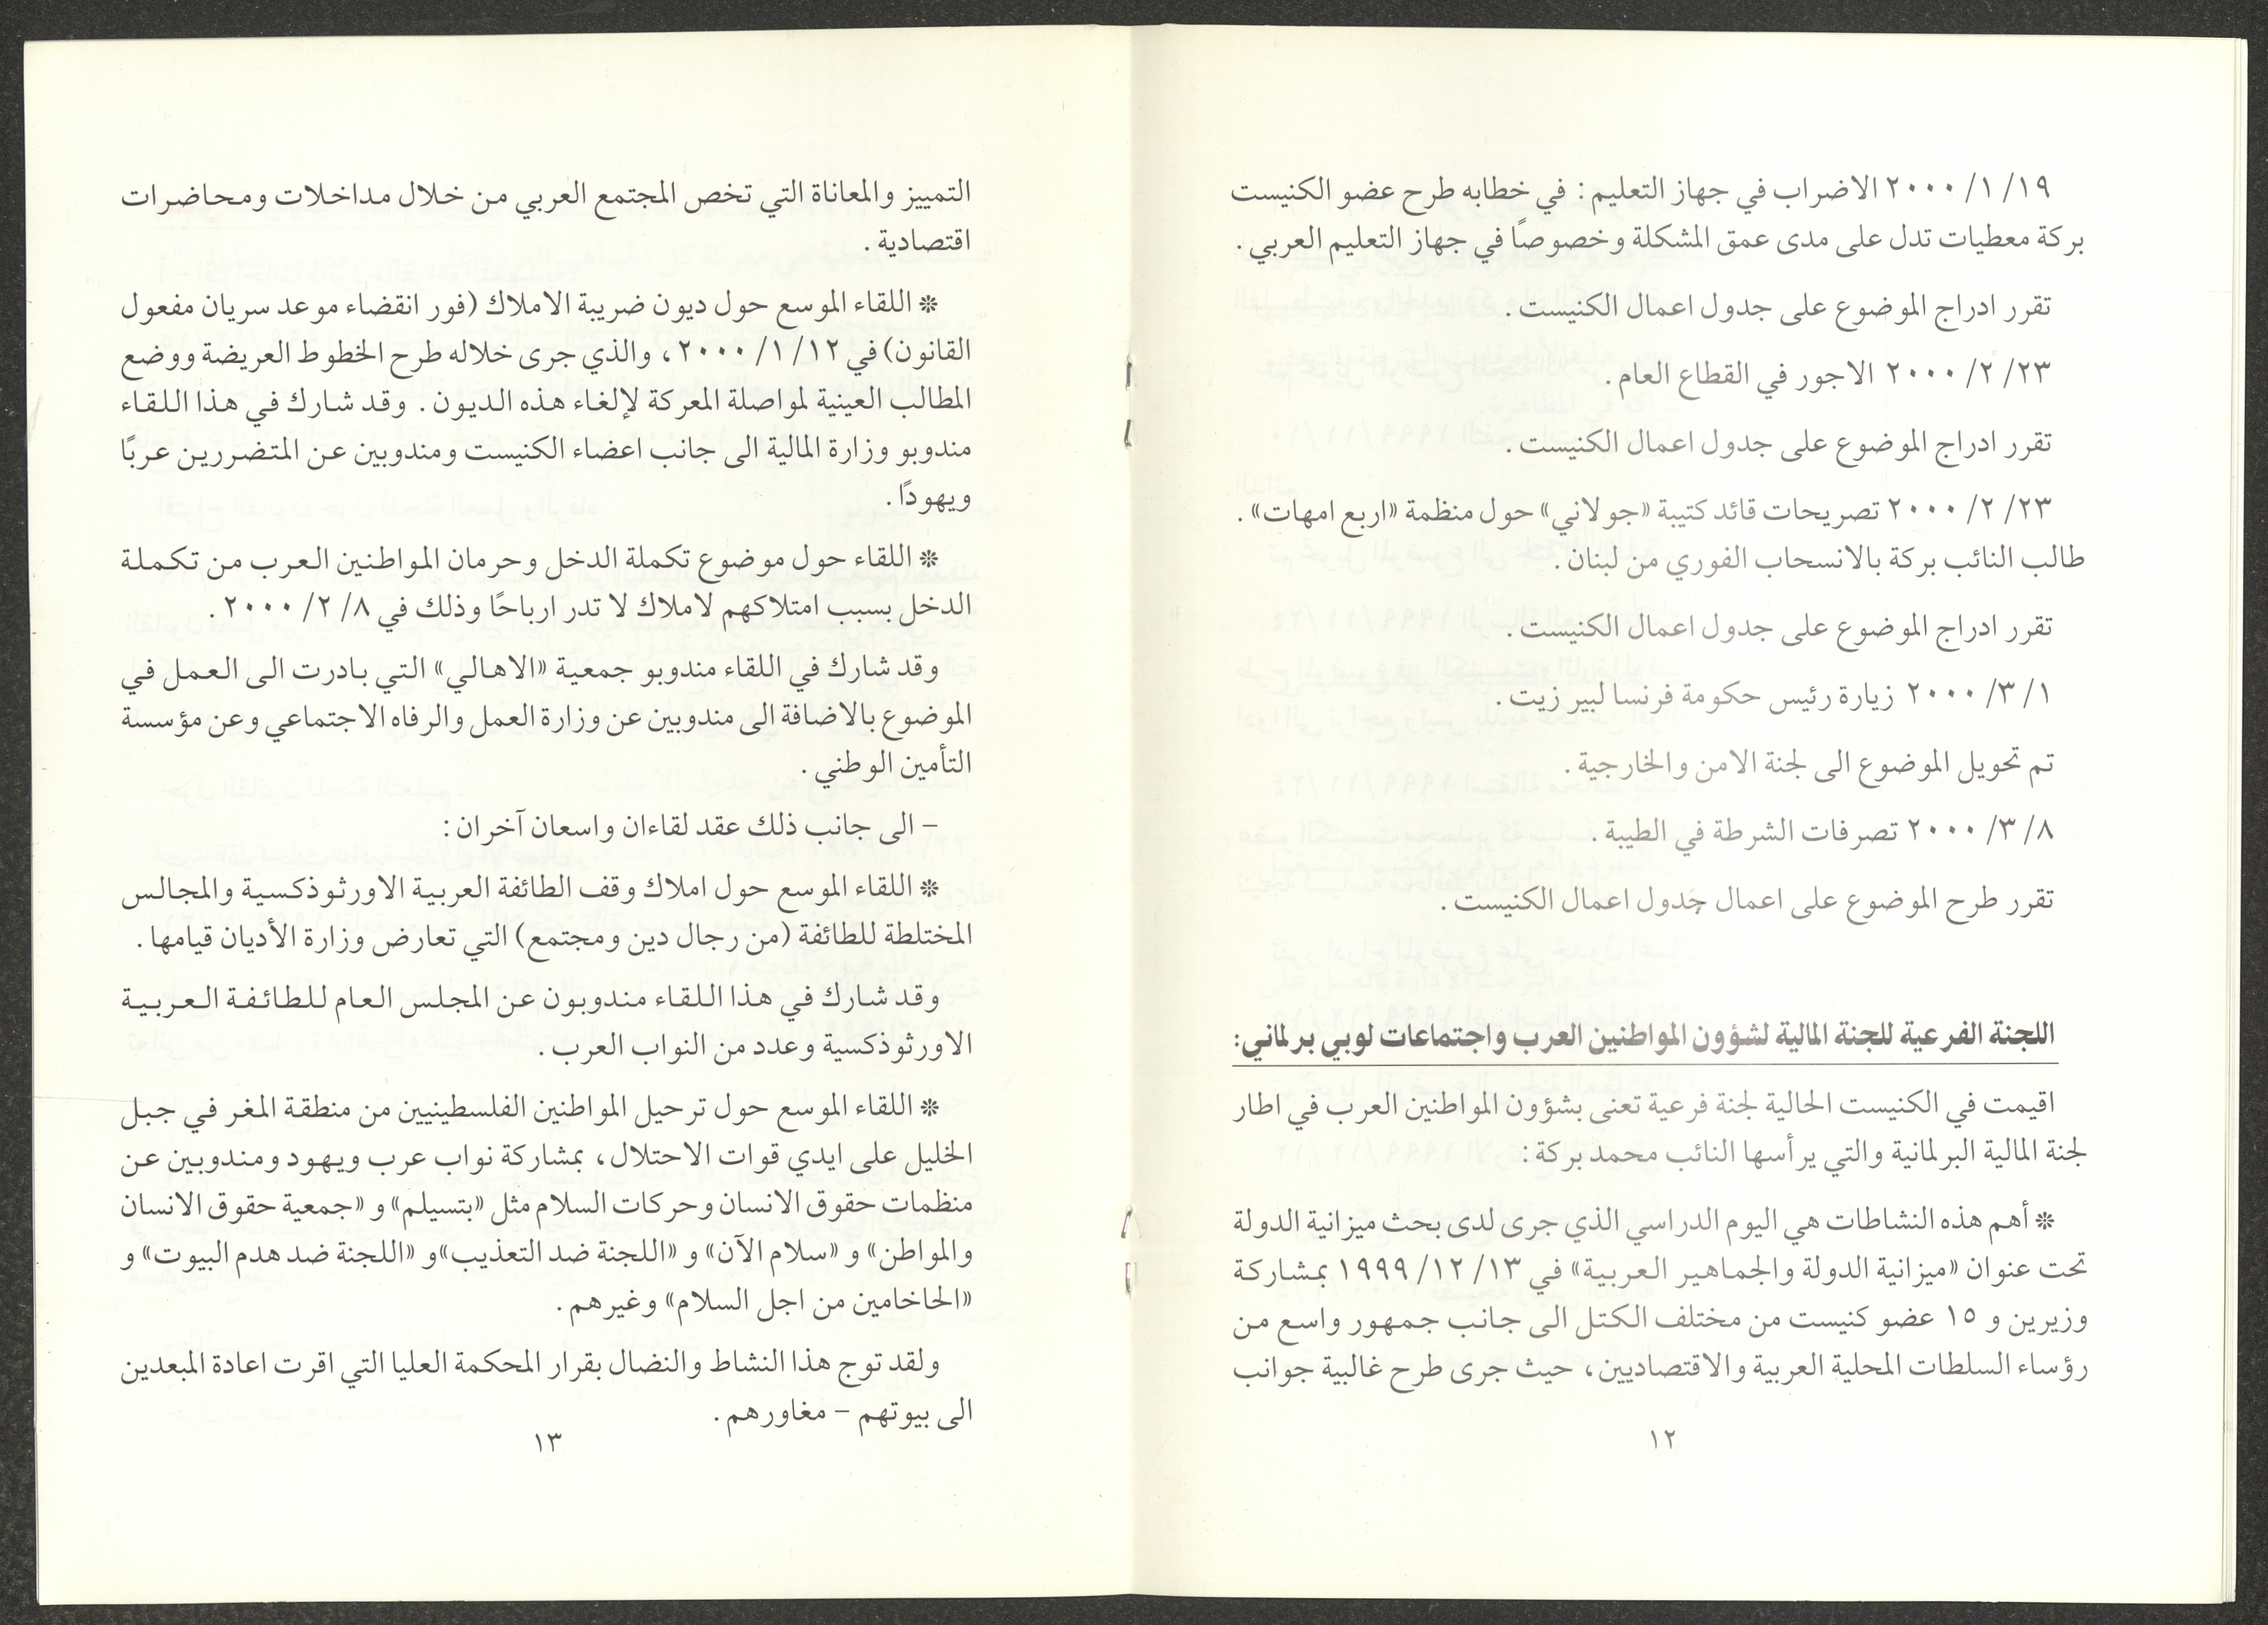 ١٩/ ١/ ٢٠٠٠ الاضراب في جهاز التعليم: في خطابه طرح عضو الكنيست
بركة معطيات تدل على مدى عمق المشكلة وخصوصًا في جهاز التعليم العربي.
تقرر ادراج الموضوع على جدول اعمال الكنيست.
٢٣/ ٢/ ٢٠٠٠ الاجور في القطاع العام.
تقرر ادراج الموضوع على جدول اعمال الكنيست.
٢٣/ ٢/ ٢٠٠٠ تصريحات قائد كتيبة «جولاني» حول منظمة «اربع امهات».
طالب النائب بركة بالانسحاب الفوري من لبنان.
تقرر ادراج الموضوع على جدول اعمال الكنيست.
١/ ٣/ ٢٠٠٠ زيارة رئيس حكومة فرنسا لبير زيت.
تم تحويل الموضوع الى لجنة الامن والخارجية.
٨/ ٣/ ٢٠٠٠ تصرفات الشرطة في الطيبة.
تقرر طرح الموضوع على اعمال جدول اعمال الكنيست.
اللجنة الفرعية للجنة المالية لشؤون المواطنين العرب واجتماعات لوبي برلماني:
اقيمت في الكنيست الحالية لجنة فرعية تعنى بشؤون المواطنين العرب في اطار
لجنة المالية البرلمانية والتي يرأسها النائب محمد بركة:
* أهم هذه النشاطات هي اليوم الدراسي الذي جرى لدى بحث ميزانية الدولة
تحت عنوان «ميزانية الدولة والجماهير العربية» في ١٣/ ١٢/ ١٩٩٩ بمشاركة
وزيرين و ١٥ عضو كنيست من مختلف الكتل الى جانب جمهور واسع من
رؤساء السلطات المحلية العربية والاقتصاديين، حيث جرى طرح غالبية جوانب
١٢
التمييز والمعاناة التي تخص المجتمع العربي من خلال مداخلات ومحاضرات
اقتصادية.
* اللقاء الموسع حول ديون ضريبة الاملاك (فور انقضاء موعد سريان مفعول
القانون) في ١٢/ ١/ ٢٠٠٠، والذي جرى خلاله طرح الخطوط العريضة ووضع
المطالب العينية لمواصلة المعركة لإلغاء هذه الديون. وقد شارك في هذا اللقاء
مندوبو وزارة المالية الى جانب اعضاء الكنيست ومندوبين عن المتضررين عربًا
ويهودًا.
* اللقاء حول موضوع تكملة الدخل وحرمان المواطنين العرب من تكملة
الدخل بسبب امتلاكهم لاملاك لا تدر ارباحًا وذلك في ٨/ ٢/ ٢٠٠٠.
وقد شارك في اللقاء مندوبو جمعية «الاهالي» التي بادرت الى العمل في
الموضوع بالاضافة الى مندوبين عن وزارة العمل والرفاه الاجتماعي وعن مؤسسة
التأمين الوطني.
– الى جانب ذلك عقد لقاءان واسعان آخران:
* اللقاء الموسع حول املاك وقف الطائفة العربية الاورثوذكسية والمجالس
المختلطة للطائفة (من رجال دين ومجتمع) التي تعارض وزارة الأديان قيامها.
وقد شارك في هذا اللقاء مندوبون عن المجلس العام للطائفة العربية
الاورثوذكسية وعدد من النواب العرب.
* اللقاء الموسع حول ترحيل المواطنين الفلسطينيين من منطقة المغر في جبل
الخليل على ايدي قوات الاحتلال، بمشاركة نواب عرب ويهود ومندوبين عن
منظمات حقوق الانسان وحركات السلام مثل «بتسيلم» و «جمعية حقوق الانسان
والمواطن» و «سلام الآن» و «اللجنة ضد التعذيب» و «اللجنة ضد هدم البيوت» و
«الحاخامين من اجل السلام» وغيرهم.
ولقد توج هذا النشاط والنضال بقرار المحكمة العليا التي اقرت اعادة المبعدين
الى بيوتهم – مغاورهم.
١٣